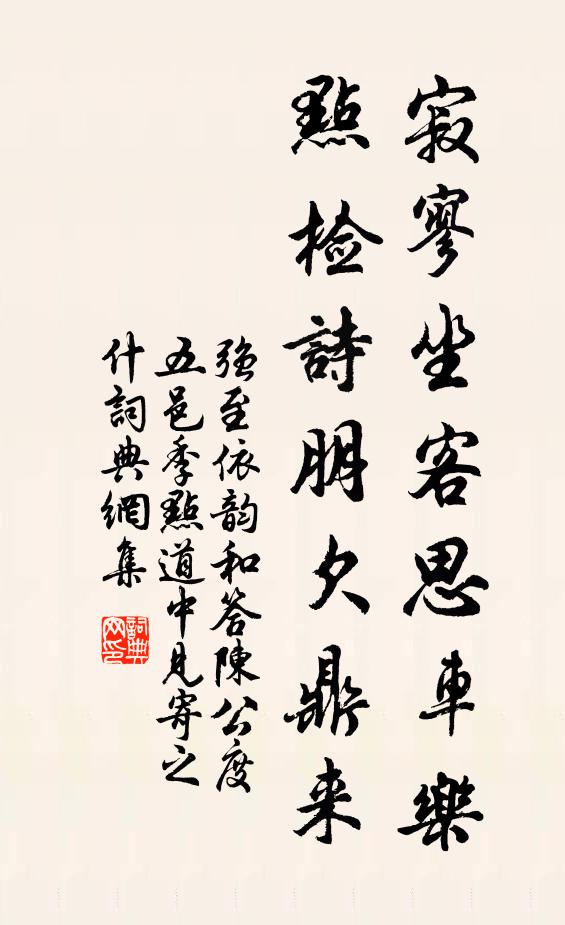 寂寥坐客思車樂
點檢詩朋欠鼎来
強至依韵和答陳公度
五邑季點道中見寄之
什詞典網集
詞典網印